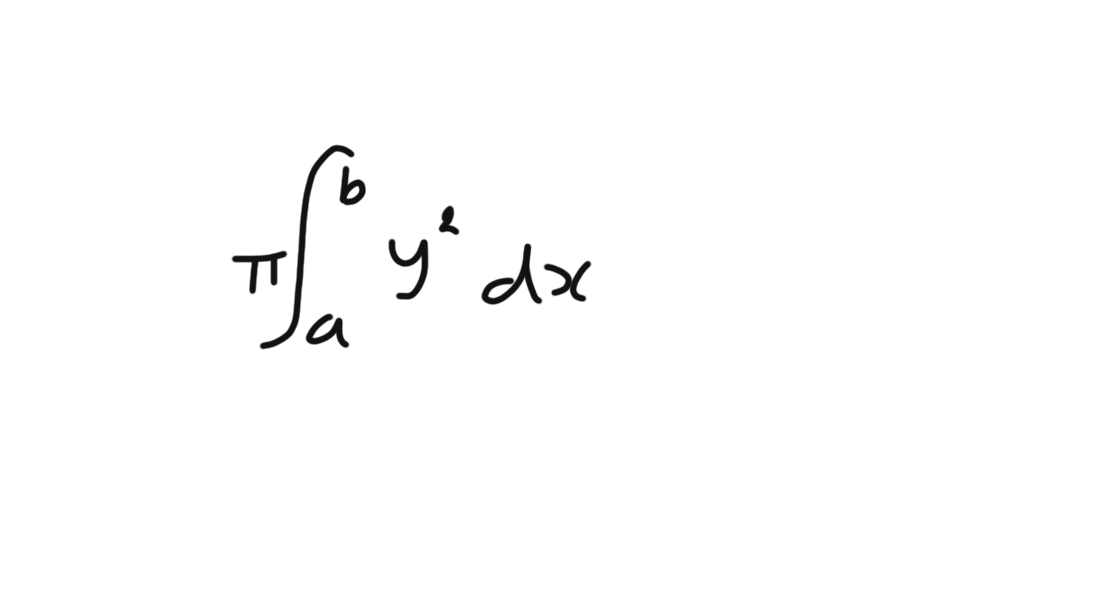 π∫_a^b y² dx